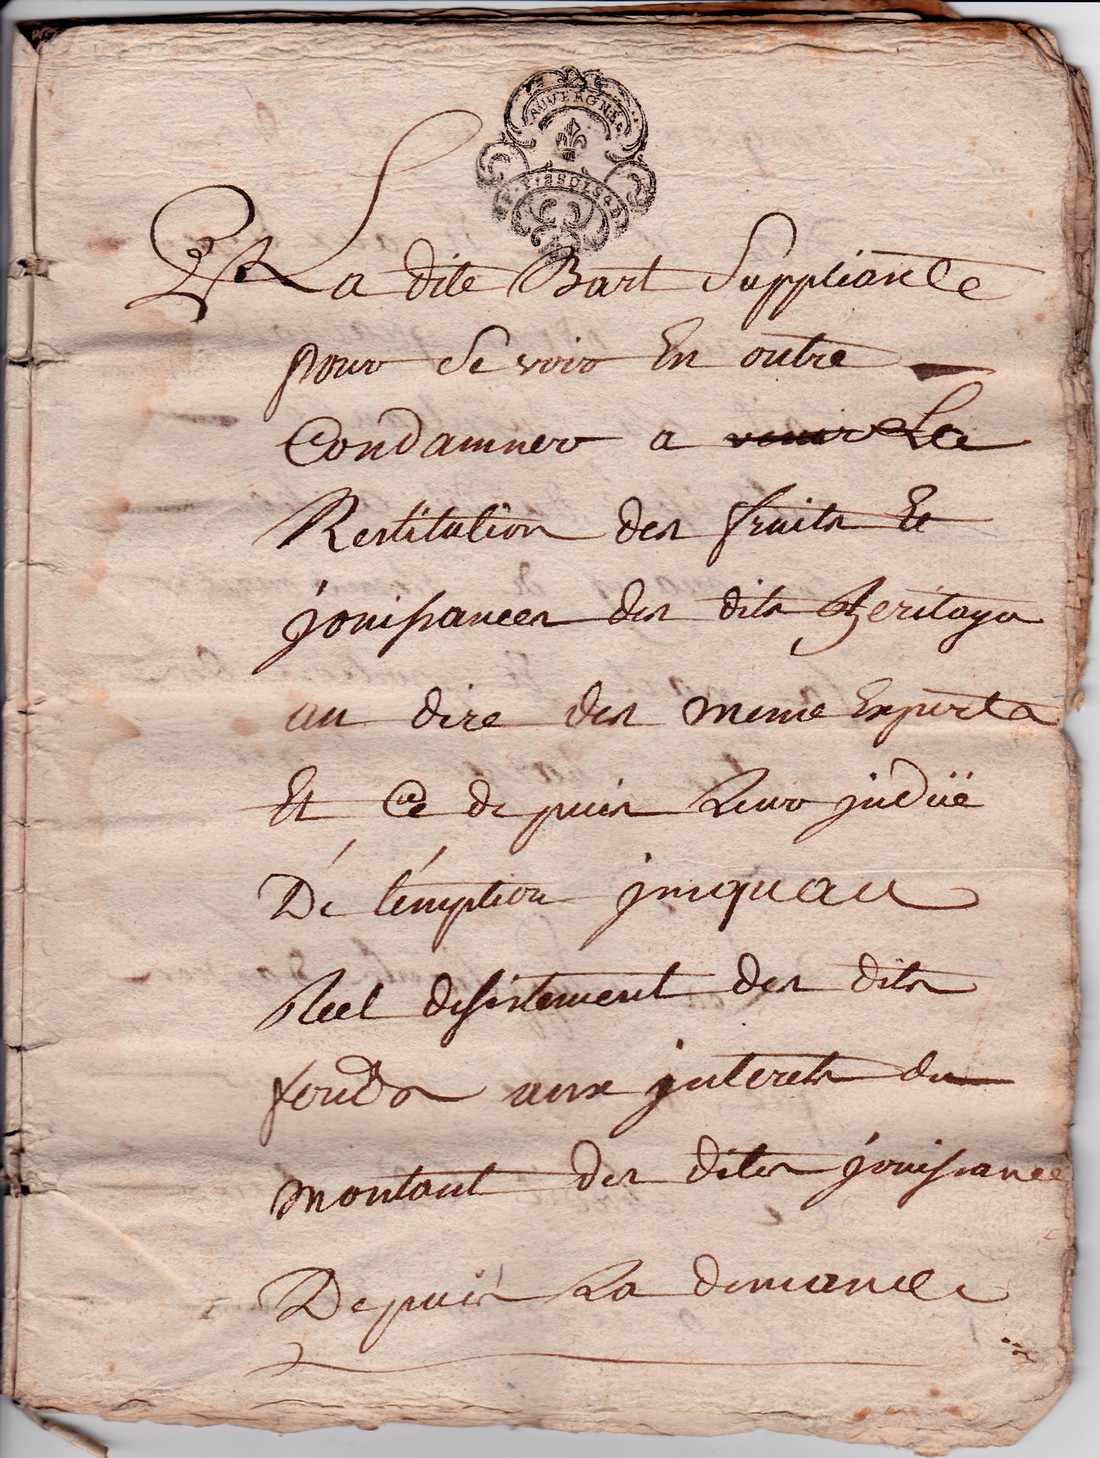 AUVERGNE
La dite Bart Suppliante
pour Se voir En outre
Condamner a venir La
Restitution des fruits Et
jouissances des dits heritages
au dire des meme Experts
Et Ce depuis Leur jndüe
De témption jusquau
Reel desistement des dits
fonds aux jnterets du
montant des dites jouissances
Depuis La demande